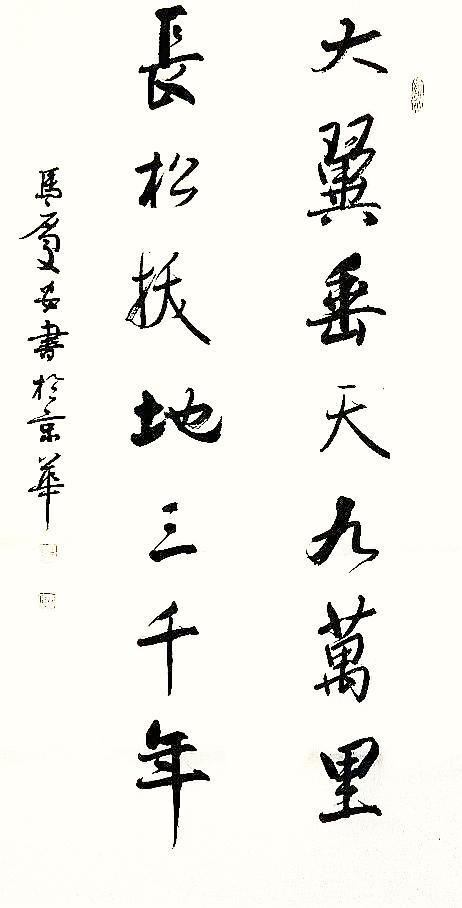 大翼垂天九萬里
長松拔地三千年
馬慶安書於京華